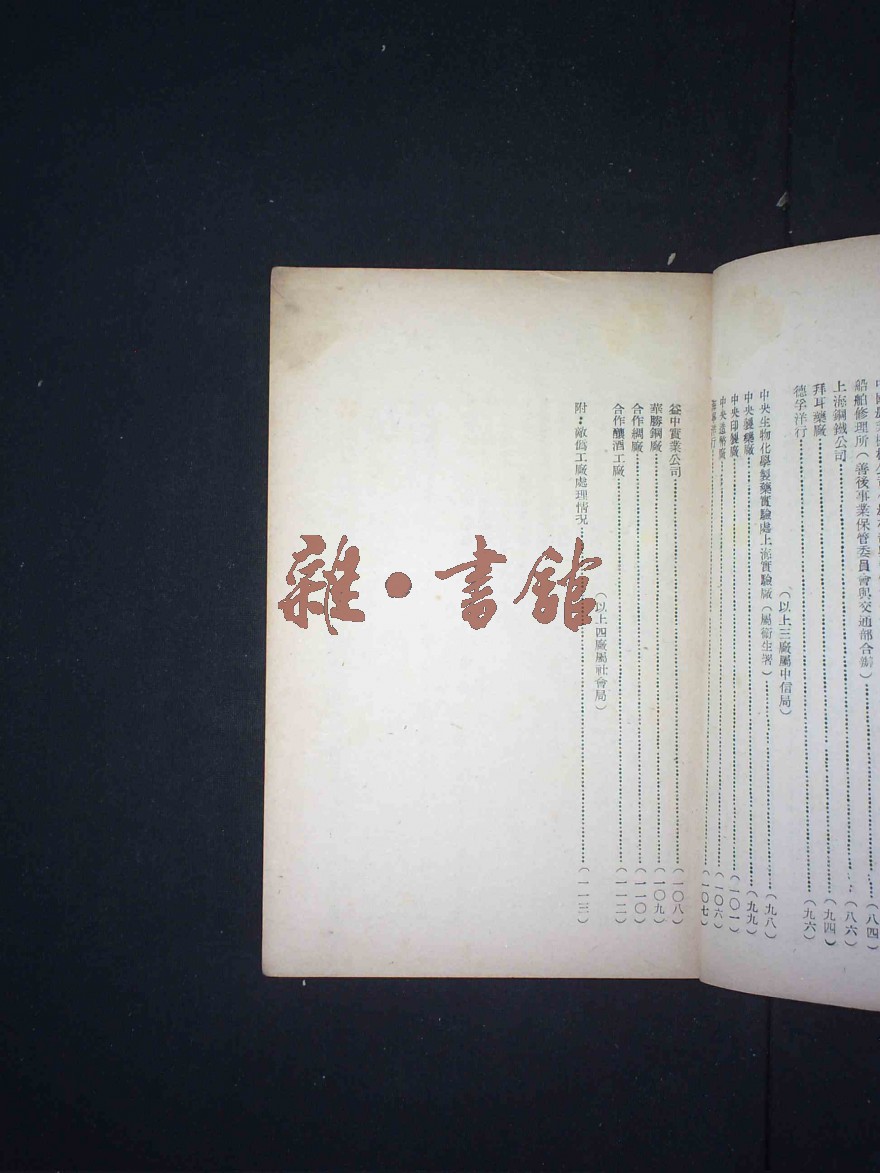 船舶修理所（善後事業保管委員會與交通部合辦）……（八四）
上海鋼鐵公司……（八六）
拜耳藥廠……（九四）
德孚洋行……（九六）
（以上三廠屬中信局）
中央生物化學製藥實驗處上海實驗廠（屬衛生署）……（九八）
中央製藥廠……（九九）
中央印製廠……（一〇一）
中央造幣廠……（一〇六）
洋行……（一〇七）
益中實業公司……（一〇八）
華勝鋼廠……（一〇九）
合作綢廠……（一一〇）
合作釀酒工廠……（一一二）
（以上四廠屬社會局）
附：敵僞工廠處理情況……（一一三）
雜·書館